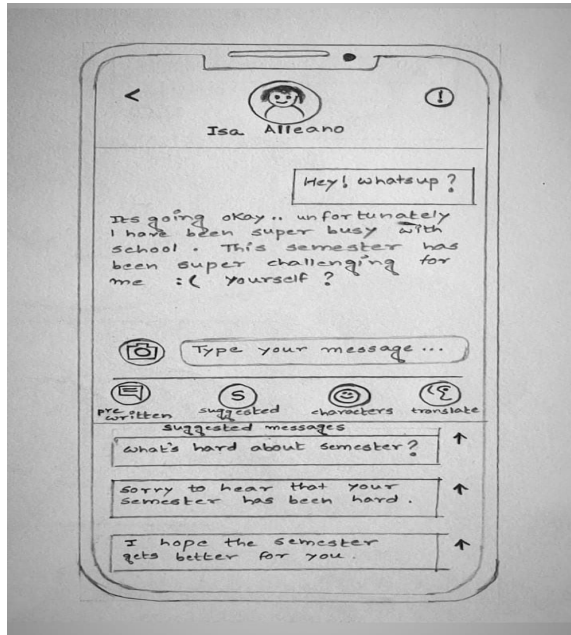 Isa Alleano
Hey! whatsup?
Its going okay.. unfortunately
I have been super busy with
school. This semester has
been super challenging for
me :( yourself?
Type your message ...
pre written
suggested
characters
translate
S
suggested messages
what's hard about semester?
sorry to hear that your
semester has been hard.
I hope the semester
gets better for you.